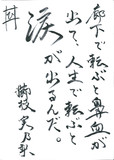 廊下で転ぶと鼻血が
出て、人生で転ぶと
涙が出るんだ。
櫛枝実乃梨